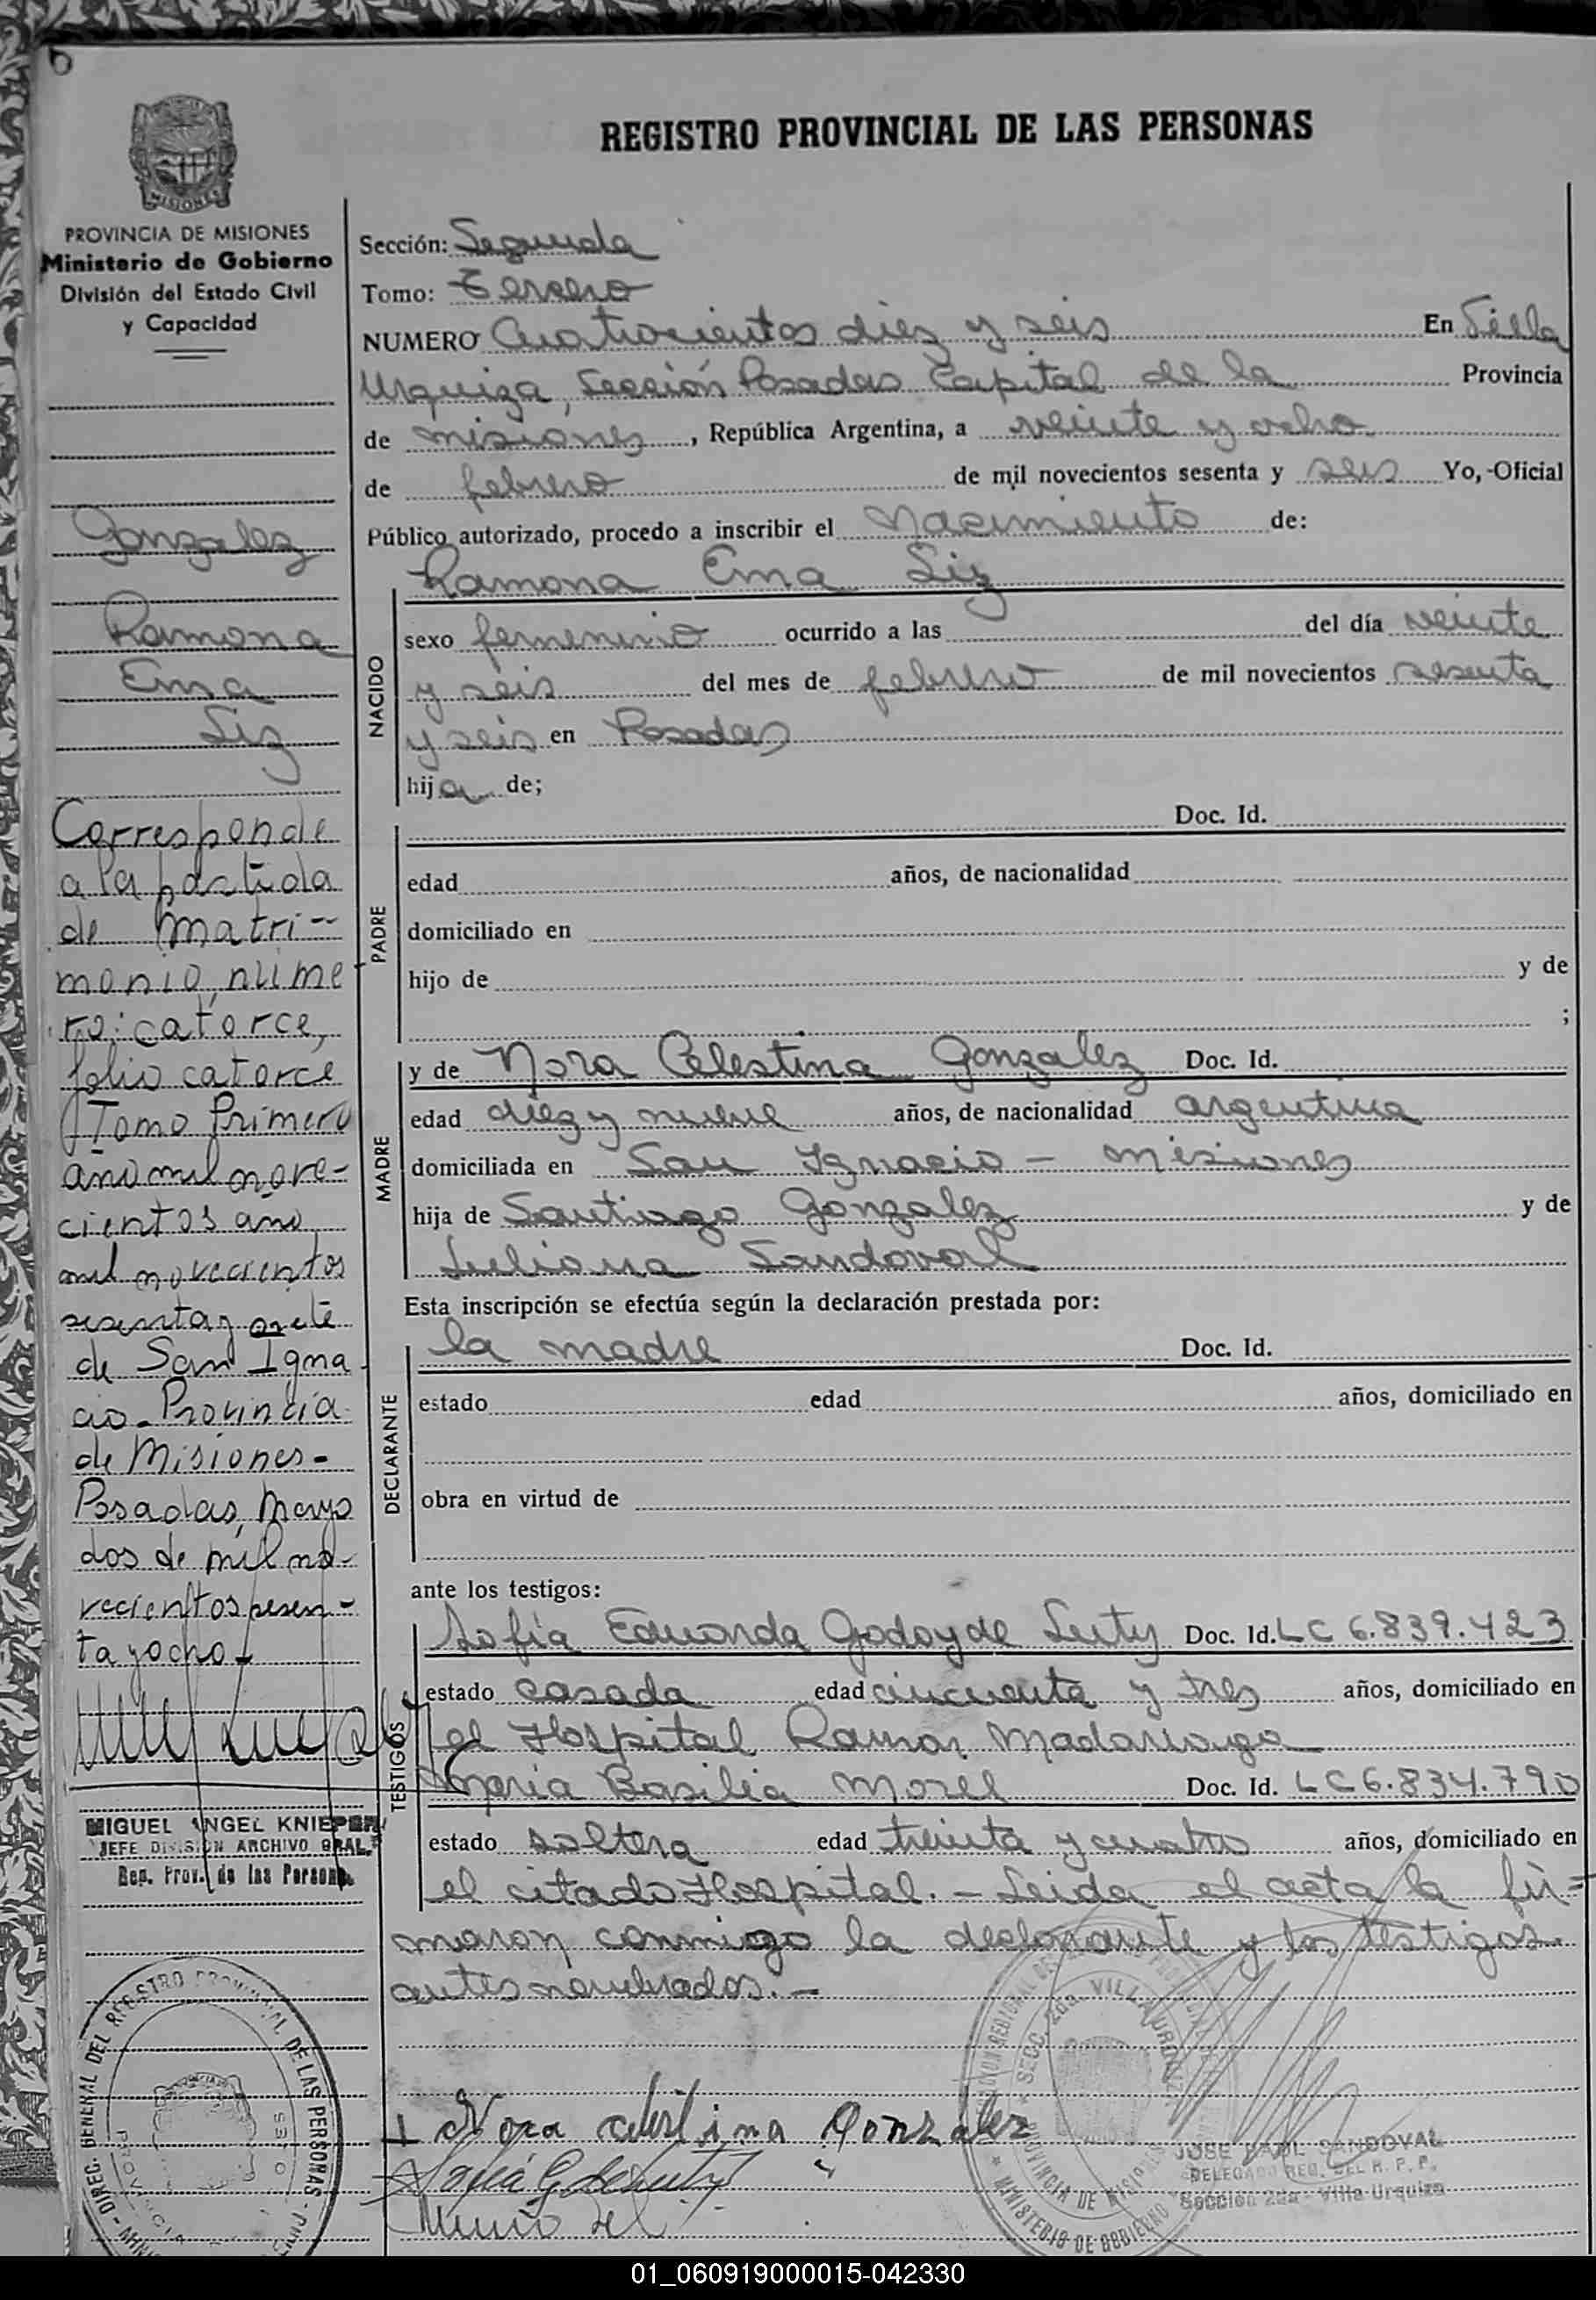 REGISTRO PROVINCIAL DE LAS PERSONAS
MISIONES
PROVINCIA DE MISIONES
Ministerio de Gobierno
División del Estado Civil
y Capacidad
Gonzalez
Ramona
Ema
Liz
Corresponde
a la partida
de Matri-
monio, núme
ro: catorce,
folio catorce
Tomo Primero
año mil nove-
cientos año
mil novecientos
sesenta y siete
de San Igna
cio - Provincia
de Misiones -
Posadas, Mayo
dos de mil no-
vecientos sesen-
ta y ocho -
MIGUEL ANGEL KNIEPER
JEFE DIVISION ARCHIVO GRAL.
Reg. Prov. de las Personas
DIREC. GENERAL DEL REGISTRO PROVINCIAL DE LAS PERSONAS
Sección: Segunda
Tomo: Tercero
NUMERO Cuatrocientos diez y seis En Villa
Urquiza, Sección Posadas Capital de la Provincia
de misiones, República Argentina, a veinte y ocho
de febrero de mil novecientos sesenta y seis Yo,-Oficial
Público autorizado, procedo a inscribir el Nacimiento de:
NACIDO
Ramona Ema Liz
sexo femenino ocurrido a las del día veinte
y seis del mes de febrero de mil novecientos sesenta
y seis en Posadas
hija de;
PADRE
Doc. Id.
edad años, de nacionalidad
domiciliado en
hijo de y de
;
MADRE
y de Nora Celestina Gonzalez Doc. Id.
edad diez y nueve años, de nacionalidad argentina
domiciliada en San Ignacio - misiones
hija de Santiago Gonzalez y de
Juliana Sandoval
Esta inscripción se efectúa según la declaración prestada por:
DECLARANTE
la madre Doc. Id.
estado edad años, domiciliado en
obra en virtud de
ante los testigos:
TESTIGOS
Sofía Eduarda Godoy de Doc. Id. LC 6.839.423
estado casada edad cincuenta y tres años, domiciliado en
el Hospital Ramon Madariaga
Maria Basilia Morel Doc. Id. LC 6.834.790
estado soltera edad treinta y cuatro años, domiciliado en
el citado Hospital. - Leida el acta la fir=
maron conmigo la declarante y los testigos
antes nombrados. -
Nora Celestina Gonzalez
SECC. 2da. VILLA URQUIZA
PROVINCIA DE MISIONES
MINISTERIO DE GOBIERNO
JOSE RAUL SANDOVAL
DELEGADO REG. DEL R. P. P.
Sección 2da - Villa Urquiza
01_060919000015-042330